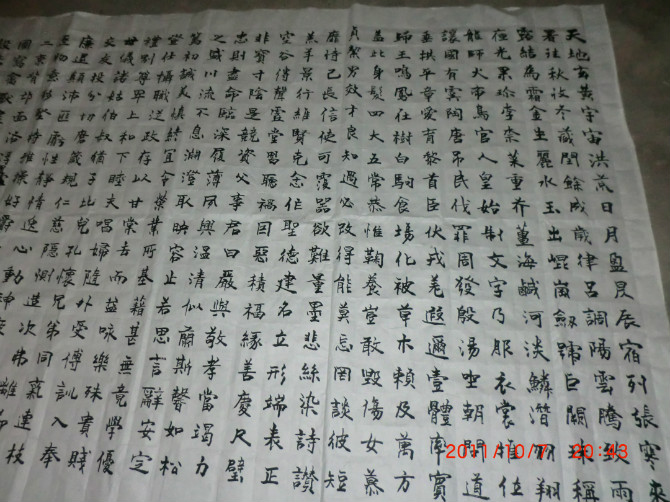 天地玄黃宇宙洪荒日月盈昃辰宿列張寒來
暑往秋收冬藏閏餘成歲律呂調陽雲騰致雨
露結為霜金生麗水玉出崑崗劍號巨闕珠稱
夜光果珍李柰菜重芥薑海鹹河淡鱗潛羽翔
龍師火帝鳥官人皇始制文字乃服衣裳推位
讓國有虞陶唐吊民伐罪周發殷湯坐朝問道
垂拱平章愛育黎首臣伏戎羌遐邇壹體率賓
歸王鳴鳳在樹白駒食場化被草木賴及萬方
蓋此身髮四大五常恭惟鞠養豈敢毀傷女慕
貞潔男效才良知過必改得能莫忘罔談彼短
靡恃己長信使可覆器欲難量墨悲絲染詩讚
羔羊景行維賢克念作聖德建名立形端表正
空谷傳聲虛堂習聽禍因惡積福緣善慶尺璧
非寶寸陰是競資父事君曰嚴與敬孝當竭力
忠則盡命臨深履薄夙興溫清似蘭斯馨如松
之盛川流不息淵澄取映容止若思言辭安定
篤初誠美慎終宜令榮業所基籍甚無竟學優
登仕攝職從政存以甘棠去而益詠樂殊貴賤
禮別尊卑上和下睦夫唱婦隨外受傅訓入奉
母儀諸姑伯叔猶子比兒孔懷兄弟同氣連枝
交友投分切磨箴規仁慈隱惻造次弗離節
廉退顛沛匪虧性靜情逸心動神
2011/10/7 20:43